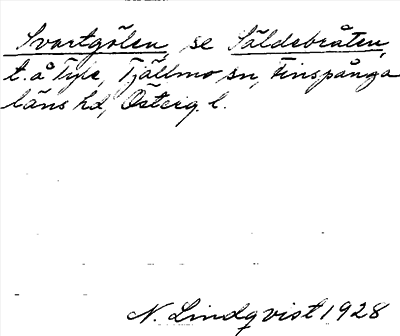 Svartgölen, se Säldebråten,
t. å Tyle, Tjällmo sn, Finspånga
läns hd, Österg. l.
N. Lindqvist 1928